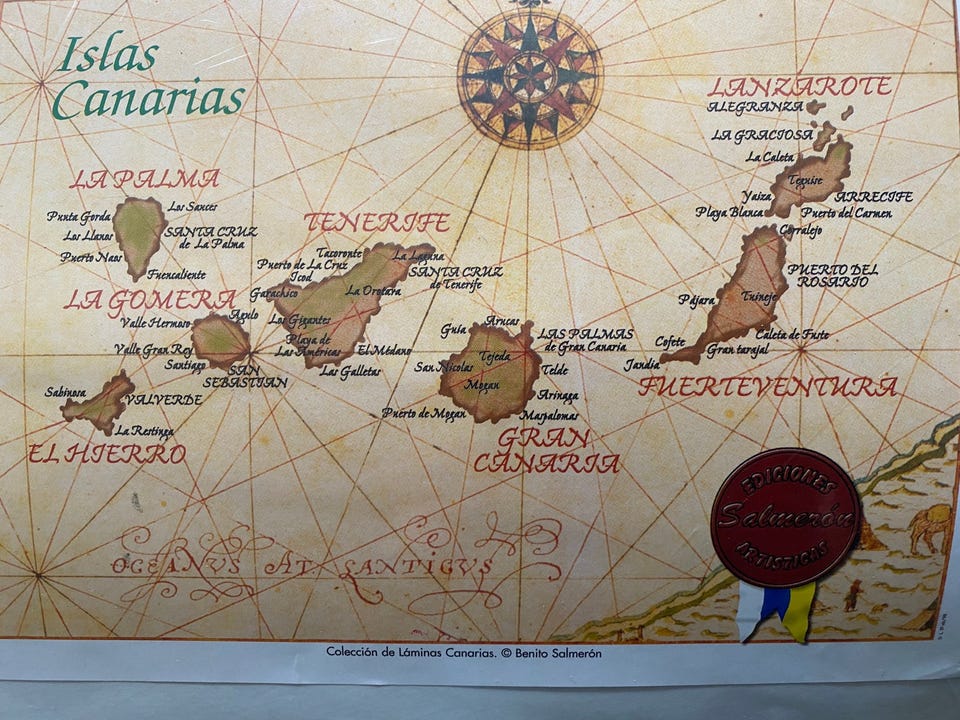 Islas
Canarias
LANZAROTE
ALEGRANZA
LA GRACIOSA
La Caleta
Teguise
Yaiza
ARRECIFE
Playa Blanca
Puerto del Carmen
LA PALMA
Punta Gorda
Los Sauces
Los Llanos
SANTA CRUZ
de La Palma
Puerto Naos
Fuencaliente
TENERIFE
Tacoronte
La Laguna
Puerto de La Cruz
SANTA CRUZ
de Tenerife
Icod
La Orotava
Garachico
Los Gigantes
Playa de
Las Américas
El Médano
Las Galletas
Corralejo
PUERTO DEL
ROSARIO
Pájara
Tuineje
Cofete
Caleta de Fuste
Gran tarajal
Jandía
FUERTEVENTURA
LA GOMERA
Agulo
Valle Hermoso
Valle Gran Rey
Santiago
SAN
SEBASTIAN
Guía
Arucas
LAS PALMAS
de Gran Canaria
Tejeda
San Nicolas
Telde
Mogan
Arinaga
Puerto de Mogan
Maspalomas
GRAN
CANARIA
Sabinosa
VALVERDE
La Restinga
EL HIERRO
OCEANVS ATLANTICVS
EDICIONES
Salmerón
ARTISTICAS
Colección de Láminas Canarias. © Benito Salmerón